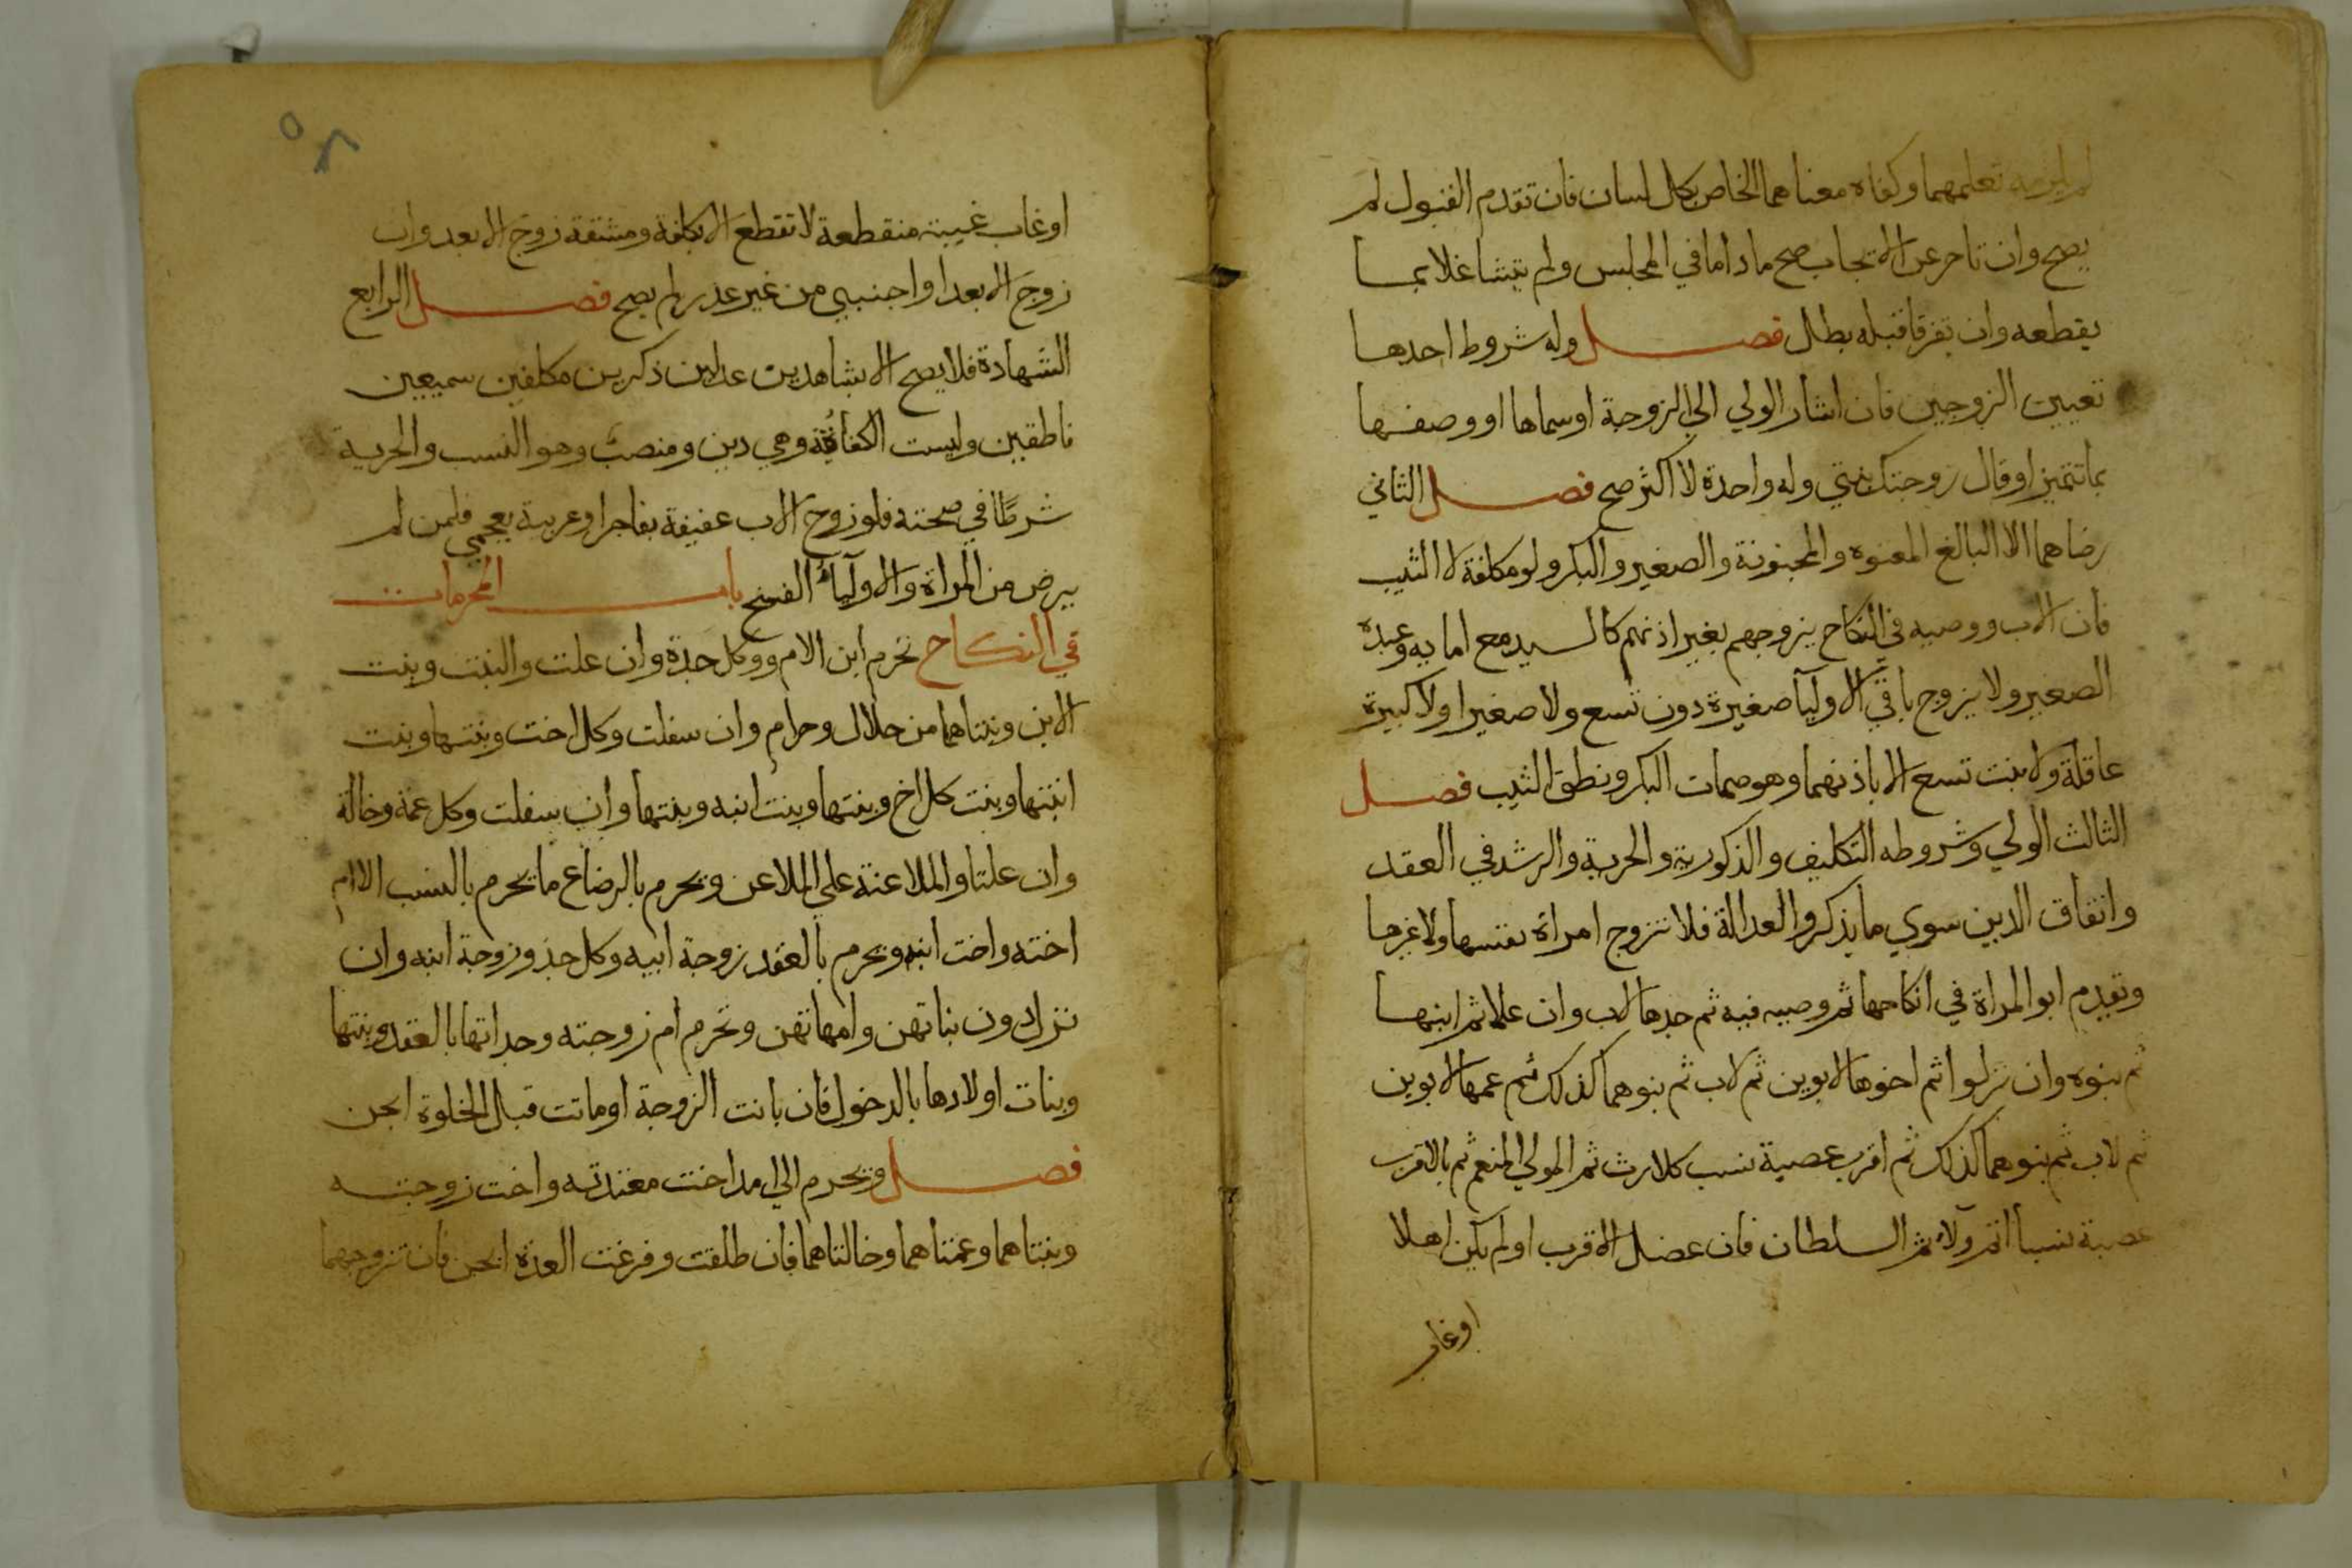 لم يلزمه تعلمهما وكفاه معناهما الخاص بكل لسان فان تقدم القبول لم
يصح وان تاخر عن الايجاب صح ماداما في المجلس ولم يتشاغلا بما
يقطعه وان تفرقا قبله بطل فصل وله شروط احدها
تعيين الزوجين فان اشار الولي الي الزوجة او سماها او وصفها
بما تتميز او قال زوجتك بنتي وله واحدة لا اكثر صح فصل الثاني
رضاهما الا البالغ المعتوه والمجنونة والصغير والبكر ولو مكلفة لا الثيب
فان الاب ووصيه في النكاح يزوجهم بغير اذنهم كالسيد مع امايه وعبده
الصغير ولا يزوج باقي الاوليآ صغيرة دون تسع ولا صغيرا ولا كبيرة
عاقلة ولا بنت تسع الا باذنهما وهو صمات البكر ونطق الثيب فصل
الثالث الولي وشروطه التكليف والذكورية والحرية والرشد في العقد
واتفاق الدين سوي ما يذكر والعدالة فلا تزوج امراة نفسها ولا غيرها
وتقدم ابو المراة في انكاحها ثم وصيه فيه ثم جدها لاب وان علا ثم ابنها
ثم بنوه وان نزلوا ثم اخوها لابوين ثم لاب ثم بنوهما كذلك ثم عمها لابوين
ثم لاب ثم بنوهما كذلك ثم اقرب عصبة نسب كلارث ثم المولي المنعم ثم بالاقرب
عصبة نسبا ثم ولآء ثم السلطان فان عضل الاقرب او لم يكن اهلا
او غاب
٥٨
او غاب غيبة منقطعة لا تقطع الا بكلفة ومشقة زوج الابعد وان
زوج الابعد او اجنبي من غير عذر لم يصح فصل الرابع
الشهادة فلا يصح الا بشاهدين عدلين ذكرين مكلفين سميعين
ناطقين وليست الكفاءة وهي دين ومنصب وهو النسب والحرية
شرطا في صحته فلو زوج الاب عفيفة بفاجر او عربية بعجمي فلمن لم
يرض من المراة والاوليآء الفسخ باب المحرمات
في النكاح تحرم ابن الام ووكل جدة وان علت والبنت وبنت
الابن وبنتاهما من حلال وحرام وان سفلت وكل اخت وبنتها وبنت
ابنتها وبنت كل اخ وبنتها وبنت ابنه وبنتها وان سفلت وكل عمة وخالة
وان علتا والملاعنة علي الملاعن ويحرم بالرضاع ما يحرم بالنسب الا ام
اخته واخت ابنه ويحرم بالعقد زوجة ابيه وكل جد وزوجة ابنه وان
نزل دون بناتهن وامهاتهن وتحرم ام زوجته وجداتها بالعقد وبنتها
وبنات اولادها بالدخول فان بانت الزوجة او ماتت قبل الخلوة ابحن
فصل ويحرم الي امد اخت معتدته واخت زوجته
وبنتاهما وعمتاهما وخالتاهما فان طلقت وفرغت العدة ابحن فان تزوجهما